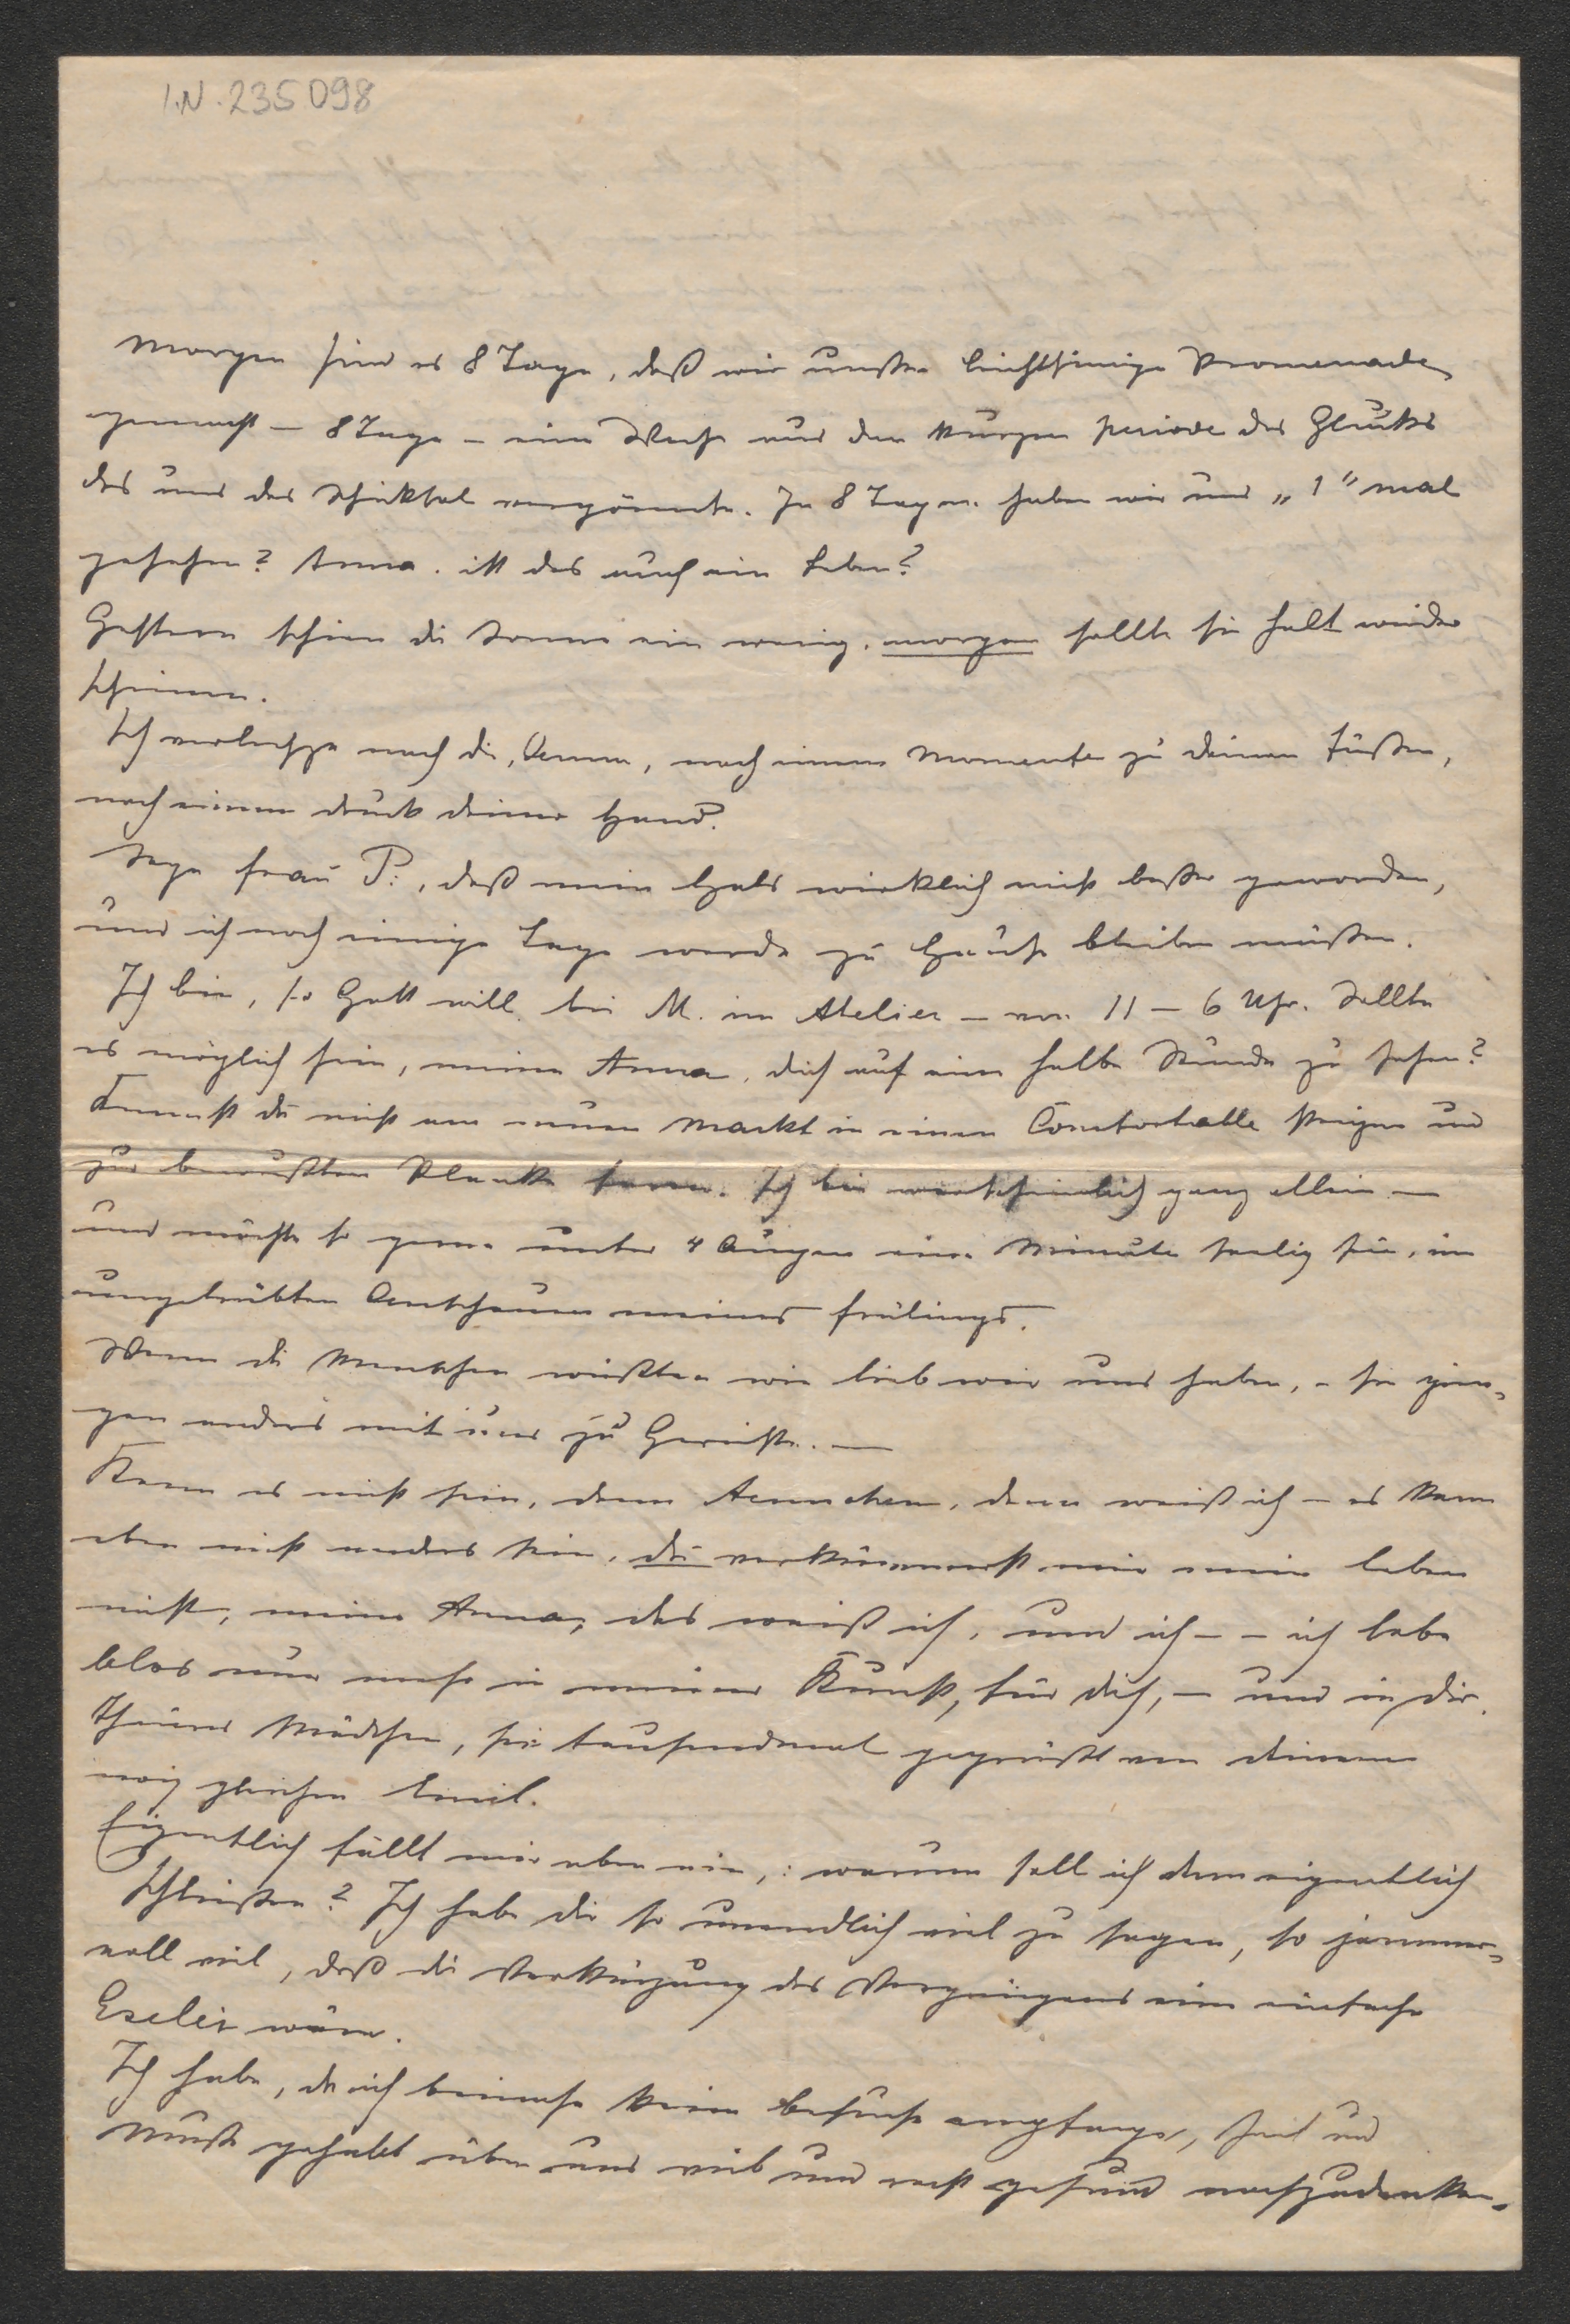 I.N. 235098
Morgen sind es 8 Tage, daß wir unßre leichtsinnige Promenade
gemacht – 8 Tage – eine Woche aus der kurzen Periode des Glücks
das uns das Schicksal vergönnte. In 8 Tagen haben wir uns „1" mal
gesehen? Anna. ist das auch ein Leben?
Gestern schien die Sonne ein wenig. morgen sollte sie halt wieder
scheinen.
Ich verlechze nach dir, Anna, nach einem Momente zu deinen Füßen,
nach einem Druck deiner Hand.
Sage Frau P:, daß mein Hals wirklich nicht besser geworden,
und ich noch einige Tage werde zu Hause bleiben müßen.
Ich bin, so Gott will bei M. im Atelier – von 11 – 6 Uhr. Sollte
es möglich sein, meine Anna, dich auf eine halbe Stunde zu sehen?
Kannst du nicht am neuen Markt in einen Comfortable steigen und
zur bewußten Planke . Ich bin warscheinlich ganz allein –
und möchte so gerne unter 4 Augen eine Minute seelig sein, im
ungetrübten Anschauen meines Frülings.
Wenn die Menschen wüßten wie lieb wir uns haben, – sie gin-
gen anders mit uns zu Gerichte. —
Kann es nicht sein, dann Aennchen, dann weiß ich – es kann
eben nicht anders sein. du verkümmerst mir mein Leben
nicht, meine Anna, das weiß ich, und ich – – ich lebe
blos nur mehr in meiner Kunst, für dich, – und in dir.
Theures Mädchen, sei tausendmal gegrüßt von deinem
ewig gleichen Emil.
Eigentlich fällt mir eben ein,: warum soll ich denn eigentlich
schließen? Ich habe dir so unendlich viel zu sagen, so jammer-
voll viel, daß die Verkürzung des Vergnügens eine einfache
Eselei wäre.
Ich habe, da ich beinahe keine Besuche empfange, Zeit und
Muße gehabt über uns viel und recht gesund nachzudenken.